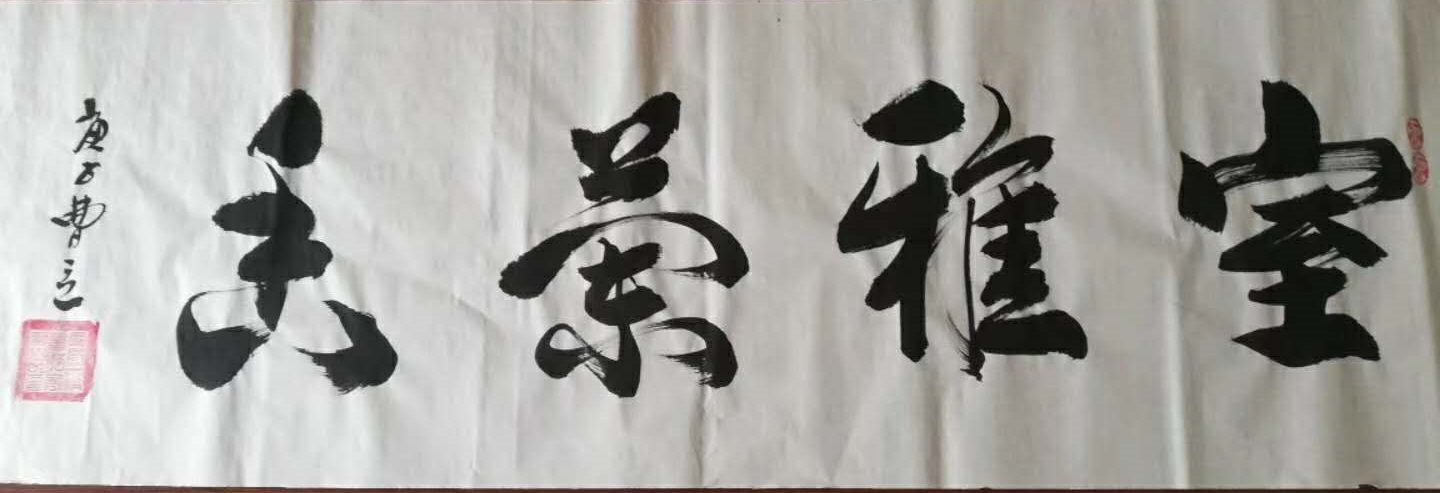 室雅蘭香
庚子曹立